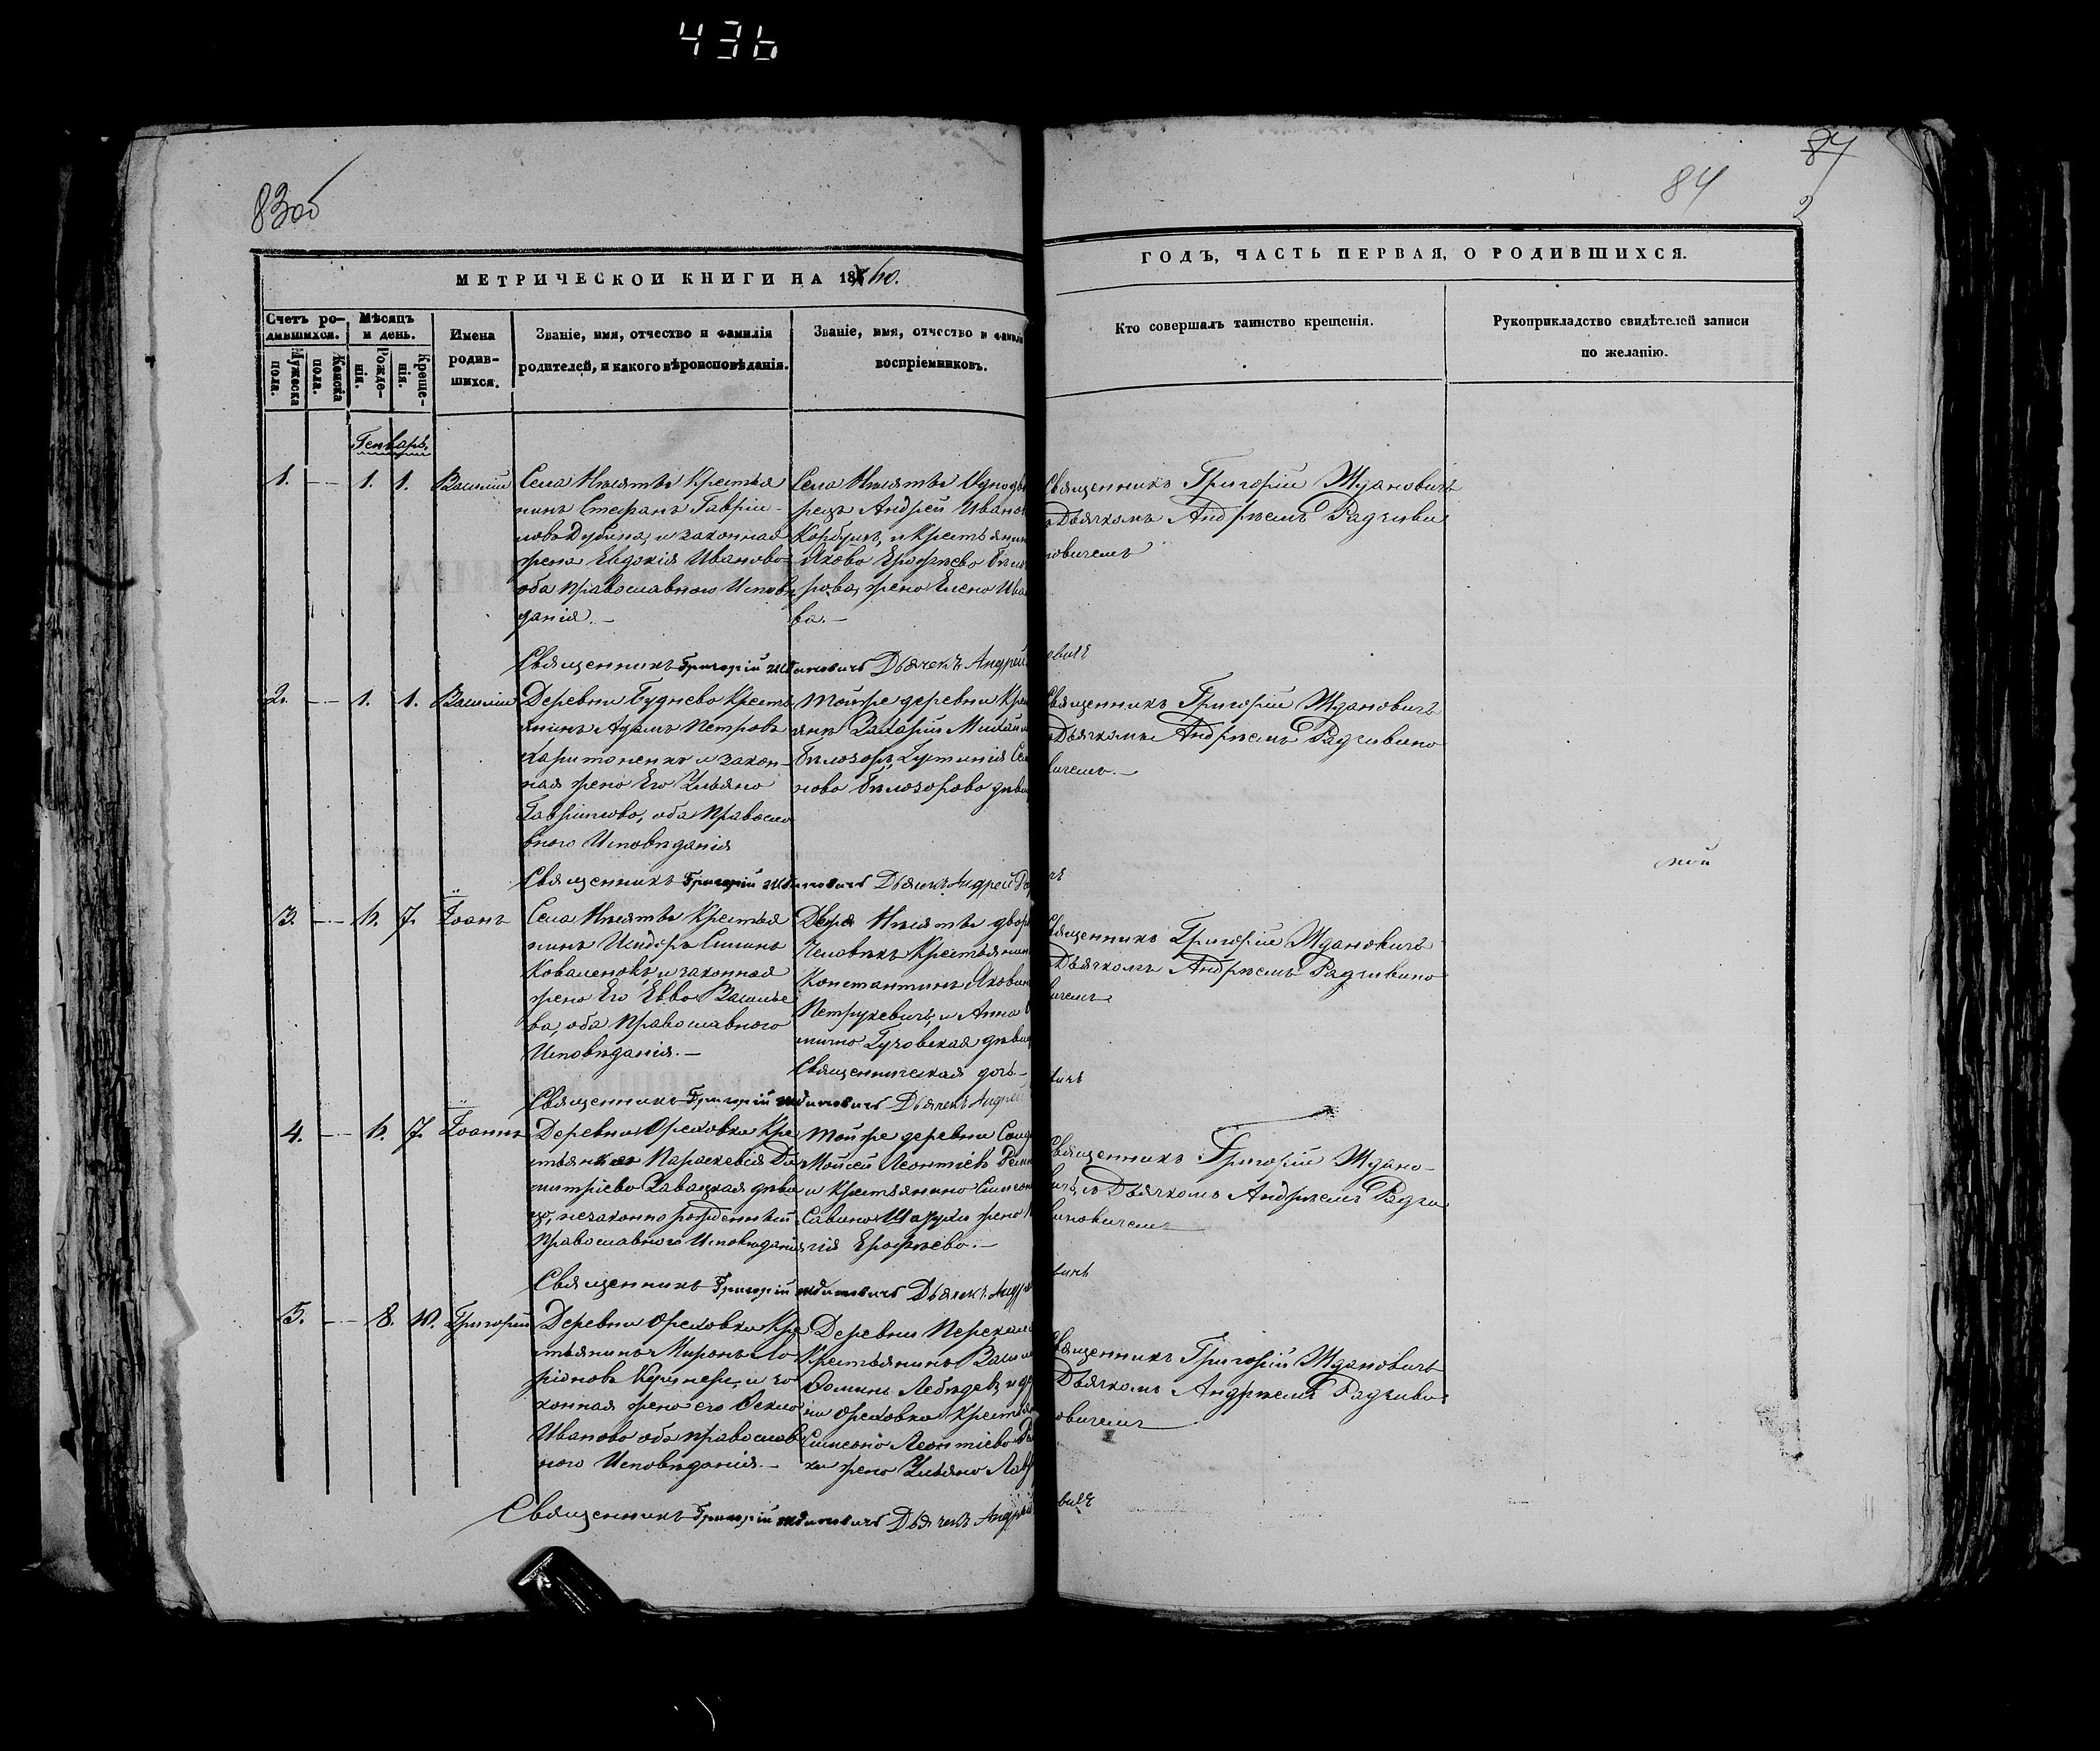 436
83об
84
84
2
МЕТРИЧЕСКОЙ КНИГИ НА 1860.
ГОДЪ, ЧАСТЬ ПЕРВАЯ, О РОДИВШИХСЯ.
Счетъ ро-
дившихся.
Мужеска
пола.
Женска
пола.
Мѣсяцъ
и день.
Рожде-
нія.
Креще-
нія.
Имена
родив-
шихся.
Званіе, имя, отчество и фамилія
родителей, и какого вѣроисповѣданія.
Званіе, имя, отчество и фамилі
воспріемниковъ.
Кто совершалъ таинство крещенія.
Рукоприкладство свидѣтелей записи
по желанію.
Генварь
1. — 1. 1. Василій
Села Нѣгятъ Крестья
нинъ Стефанъ Гавріи-
ловъ Дубина, и законная
жена Евдокія Иванова
оба православнаго Исповѣ
данія. —
Села Нѣгятъ Однодво
рецъ Андрей Ивано
и Крестьянин
Якова Ерофѣева
рова, жена Елена Ива
ва. —
Священникъ Григорій Ждановичъ
Дьячкомъ Андреемъ Радзиви
новичемъ
Священникъ Григорій Ждановичъ Дьячекъ Андрей
овичъ
2. — 1. 1. Василій
Деревни Буднево Кресть
янинъ Адамъ Петровъ
Харитоненкъ и закон-
ная жена Его Ульяна
Гавріилова, оба Правосла
внаго Исповѣданія
Той же деревни Кре
янъ Захарій Михаил
Бѣлозоръ, Іустинія Се
нова Бѣлозорова дѣви
Священникъ Григорій Ждановичъ
Дьячкомъ Андреемъ Радзивино
вичемъ. —
Священникъ Григорій Ждановичъ Дьячекъ Андрей
чъ
3. — 6. 7. Іоанъ
Села Нѣгятъ Крестья
нинъ Исидоръ
Коваленокъ, и законная
жена Его Евва Василье
ва, оба православнаго
Исповѣданія. —
Двора Нѣгятъ двор
Человѣкъ Крестьянин
Константинъ Яковл
Петрукевичъ, и Анна
Гузовская дѣвиц
Священническая дочь —
Священникъ Григорій Ждановичъ
Дьячкомъ Андреемъ Радзивино
вичемъ
Священникъ Григорій Ждановичъ Дьячекъ Андрей
вичъ
4. — 6. 7. Іоаннъ
Деревни Ореховки Кре
стьянка Параскевія Ди
митріева Завацкая дѣви
ца, незаконно рожденный
православнаго Исповѣданія
Той же деревни Солд
Мойсей Леонтіевъ
и Крестьянина Симеон
Савина жена
Ерофѣева. —
Священникъ Григорій Ждано-
вичъ, съ Дьячкомъ Андреемъ Радзи
виновичемъ
Священникъ Григорій Ждановичъ Дьячекъ Андре
вичъ
5. — 8. 10. Григорій
Деревни Ореховки Кре
стьянинъ Миронъ Ла
ріоновъ и за
конная жена его
Иванова оба православ
наго Исповѣданія. —
Деревни
Крестьянинъ Васили
Фоминъ Лебедевъ, и де
ни Ореховки Крестья
Симеона Леонтіева
ки жена Ульяна Лавр
Священникъ Григорій Ждановичъ
Дьячкомъ Андреемъ Радзиви
овичемъ
Священникъ Григорій Ждановичъ Дьячекъ Андрей
вичъ